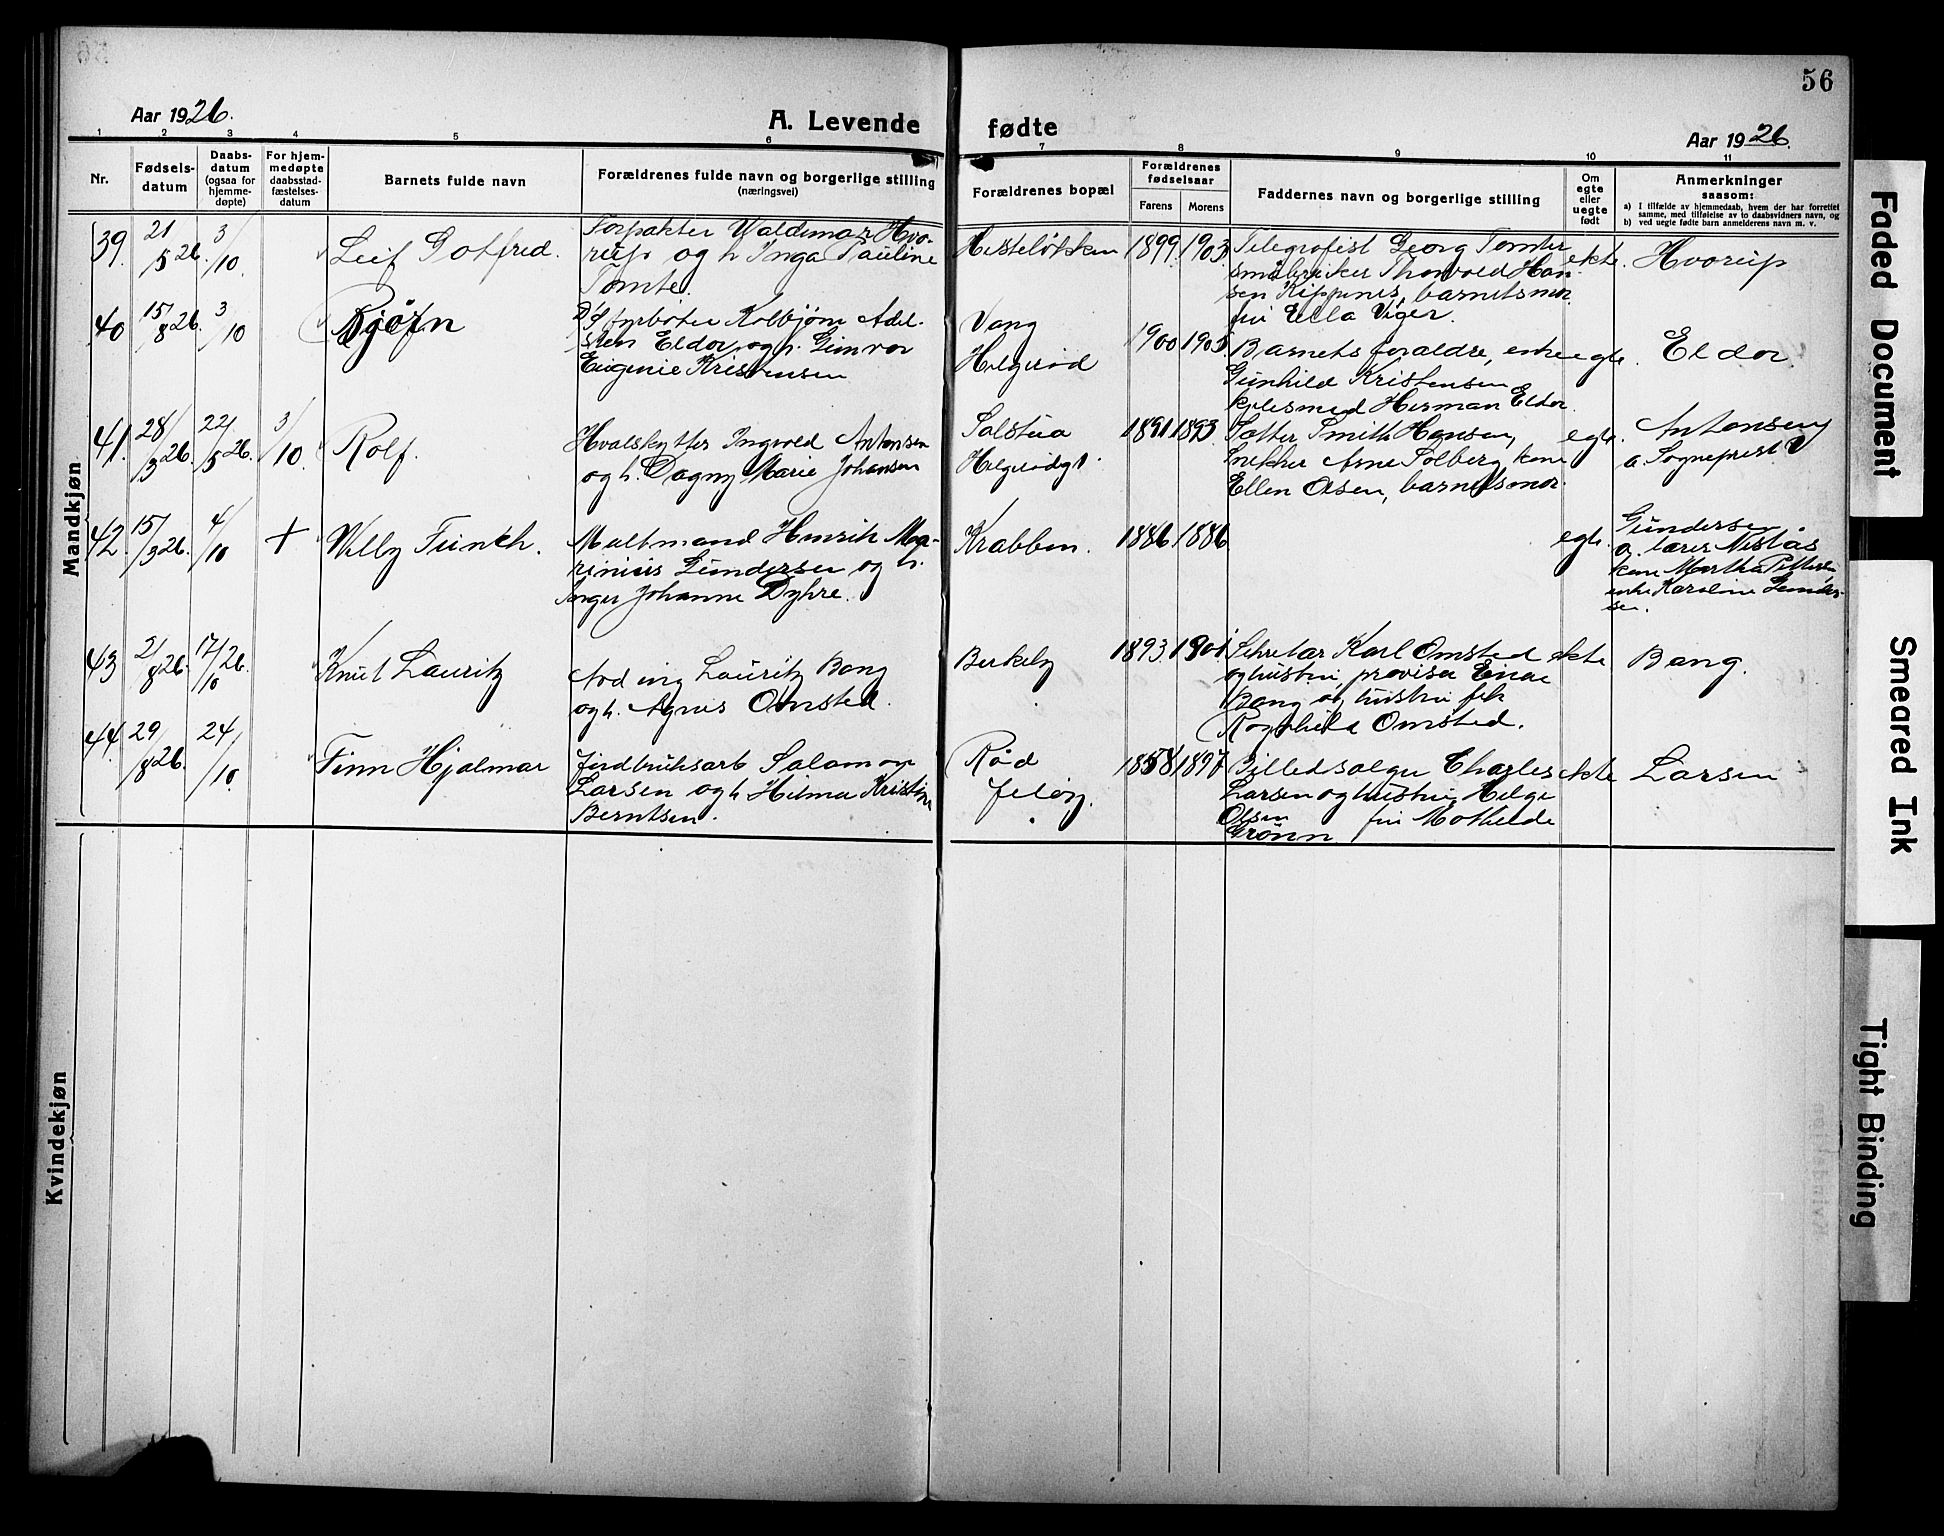 56
Aar 1926.
A. Levende fødte
Aar 1926.
1 2 3 4 5 6 7 8 9 10 11
Nr.
Fødsels-
datum
Daabs-
datum
(ogsaa for
hjemme-
døpte)
For hjem-
medøpte
daabsstad-
fæstelses-
datum
Barnets fulde navn
Forældrenes fulde navn og borgerlige stilling
(næringsvei)
Forældrenes bopæl
Forældrenes
fødselsaar
Farens Morens
Faddernes navn og borgerlige stilling
Om
egte
eller
uegte
født
Anmerkninger
saasom:
a) I tilfælde av hjemmedaab, hvem der har forrettet
samme, med tilføielse av to daabsvidners navn, og
b) ved uegte fødte barn anmelderens navn m. v.
Mandkjøn
39. 21/5 26. 3/10 Leif Gotfred.
Forpakter Waldemar Hvo-
rup og h Inga Pauline
Tomte.
Hesteløkken 1899 1903
Telegrafist Georg Tomter
småbruker Thorvald Han-
sen Kippenes, barnets mor
fru Ella Viger.
ekte. Hvorup
40 15/8 26. 3/10 Bjørn
Styrbøter Kolbjørn Adel-
sten Eldor, og h. Gunvor
Eugenie Kristensen
Vang
Helgerød
1900 1905
Barnets foraldre, enke
Gunhild Kristensen
Herman Eldor.
egte. Eldor
41. 28/3 26. 22/5 26. 3/10. Rolf.
Hvalskytter Ingvold Antonsen
og h. Dagny Marie Johansen
Solstua
Helgerødgt.
1891 1893
Smith Hansen,
Snekker Arne Solberg, kone
Ellen Olsen, barnets mor.
egte. Antonsen
a. Sogneprest
42. 15/3 26. 4/10 + Willy Funch.
Maltmand Henrik Ma-
rinius Gundersen og h.
Inger Johanne Dyhre.
Krabben. 1886 1886
egte. Gundersen
a. lærer Nestås
kone Martha Pettersen
enke Karoline Gunder-
sen.
43 21/8 26. 17/10 26. Knut Lauritz
Lauritz Bang
og h. Agnes Omsted.
Berkeby 1893. 1901
Sekretær Karl Omsted
og hustru, provisor Einar
Bang og hustru frk
Ragnhild Omsted.
ekte Bang.
44. 29/8 26. 24/10 Finn Hjalmar
Jordbruksarb Salamon
Larsen og h Hilma Kristine
Berntsen.
Rød
Jeløy.
1858 1897
Charles
Larsen og hustru, Helge
Olsen fru Mathilde
Grönn
ekte Larsen
Kvindekjøn
Faded Document
Smeared Ink
Tight Binding